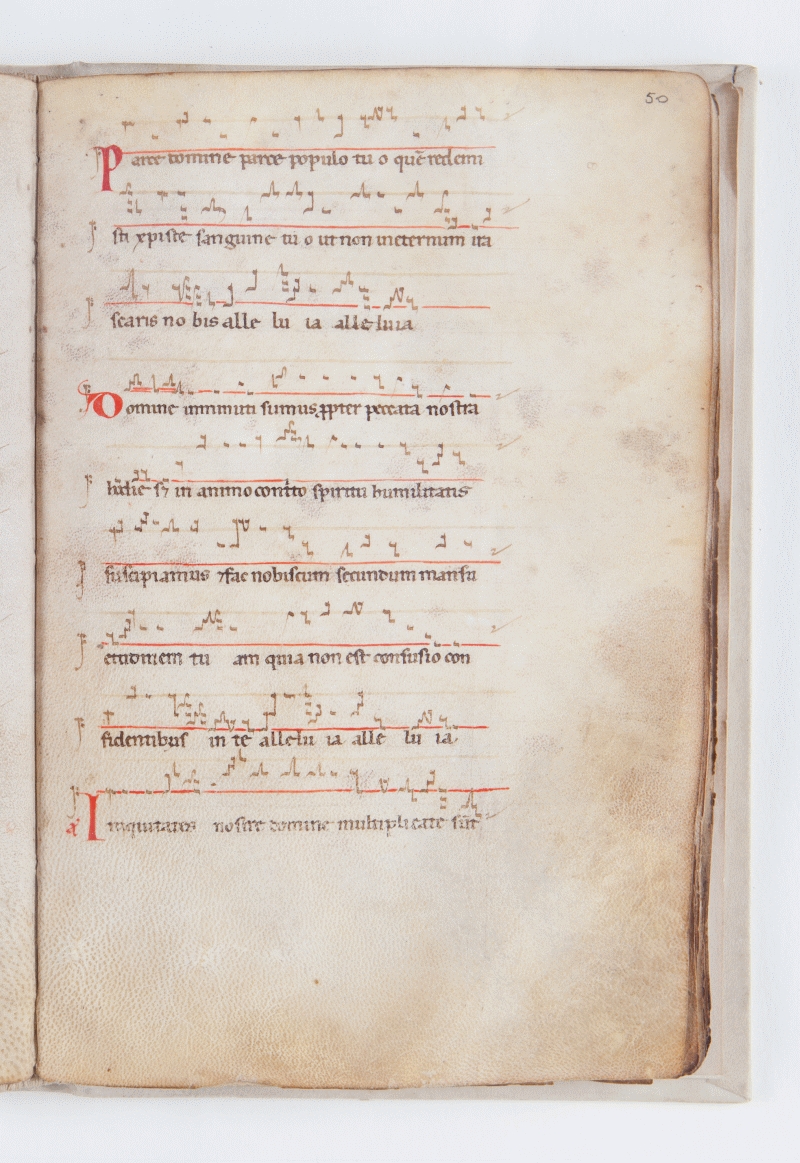 50
Parce domine parce populo tu o quē redemi
sti xpiste sanguine tu o ut non ineternum ira
scaris no bis alle lu ia alleluia
Domine imminuti sumus ꝓpter peccata nostra
in animo cont̾to spiritu humilitatis
suscipiamur ⁊fac nobiscum secundum mansu
etudinem tu am quia non est confusio con
fidentibus in te allelu ia alle lu ia
a Iniquitates nostre domine multiplicate sūt